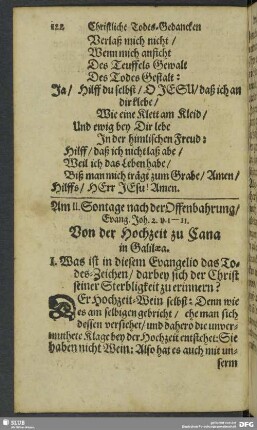 822 Christliche Todes-Gedancken
Verlaß mich nicht /
Wenn mich anficht
Des Teuffels Gewalt
Des Todes Gestalt:
Ja / Hilff du selbst / O JESU / daß ich an
dir klebe /
Wie eine Klett am Kleid /
Und ewig bey Dir lebe
In der himlischen Freud:
Hilff / daß ich nicht laß abe /
Weil ich das Leben habe /
Biß man mich trägt zum Grabe / Amen /
Hilffs / HErr JEsu! Amen.
Am II. Sontage nach der Offenbahrung /
Evang. Joh. 2. v. 1-11.
Von der Hochzeit zu Cana
in Galilæa.
I. Was ist in diesem Evangelio das To-
des-Zeichen / darbey sich der Christ
seiner Sterbligkeit zu erinnern?
DEr Hochzeit-Wein selbst: Denn wie
es am selbigen gebricht / ehe man sich
dessen versichet / und dahero die unver-
muthete Klage bey der Hochzeit entstehet: Sie
haben nicht Wein: Also hat es auch mit un-
serm
SLUB
DFG